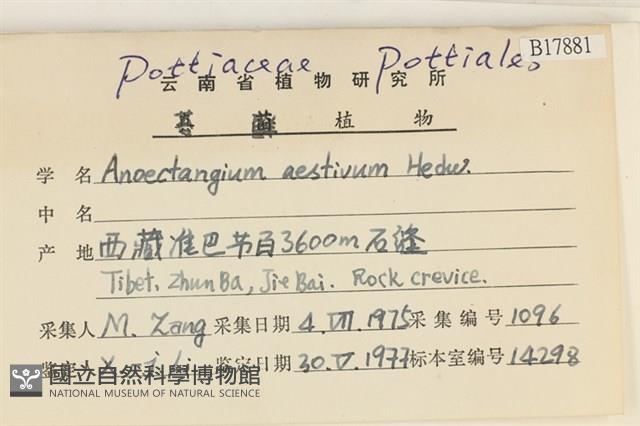 B17881
Pottiaceae Pottiales
云南省植物研究所
植物
学名 Anoectangium aestivum Hedw.
中名
产地 西藏准巴节百3600m石缝
Tibet. ZhunBa, Jie Bai. Rock crevice.
采集人 M. Zang 采集日期 4.VII.1975 采集编号 1096
鉴定日期 30.V.1977 标本室编号 14298
國立自然科學博物館
NATIONAL MUSEUM OF NATURAL SCIENCE